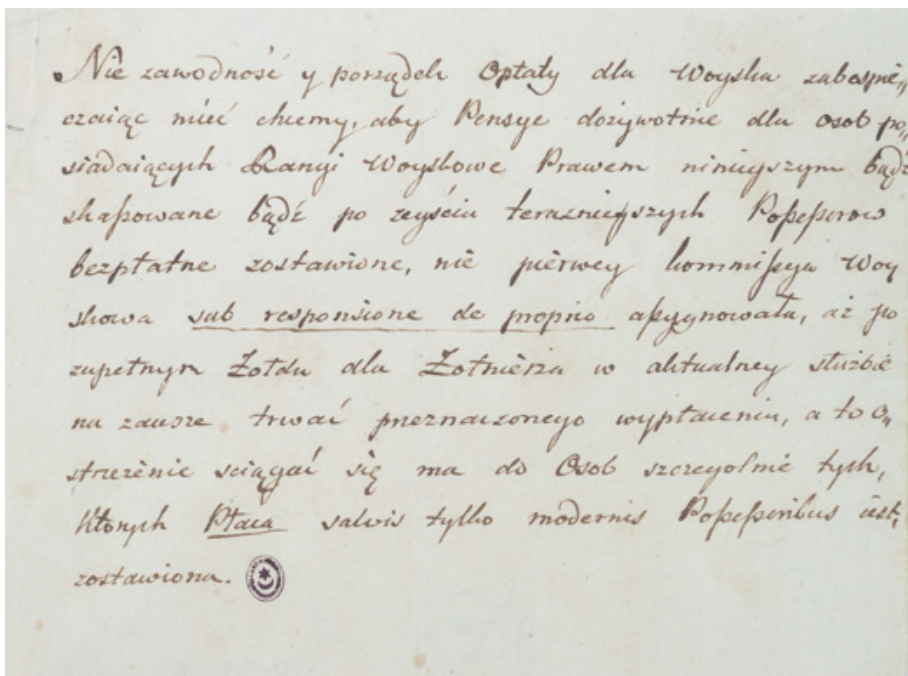 Nie zawodność y porządek Opłaty dla Woyska zabespie„
czaiąc mieć chcemy, aby Pensye dożywotnie dla osob po„
siadaiących Rangi Woyskowe Prawem ninieyszym bądź
skaſsowane bądź po zeyściu teraznieyszych Poſseſsorow
bezpłatne zostawione, nie pierwey Kommiſsya Woy
skowa sub responsione de proprio aſsygnowała, aż po
zupełnym Żołdu dla Żołnierza w aktualney służbie
na zawsze trwać przeznaczonego wypłaceniu, a to o„
strzeżenie sciągać się ma do Osob szczegolnie tych,
Ktorych Płaca salvis tylko modernis Poſseſsoribus iest,
zostawiona.